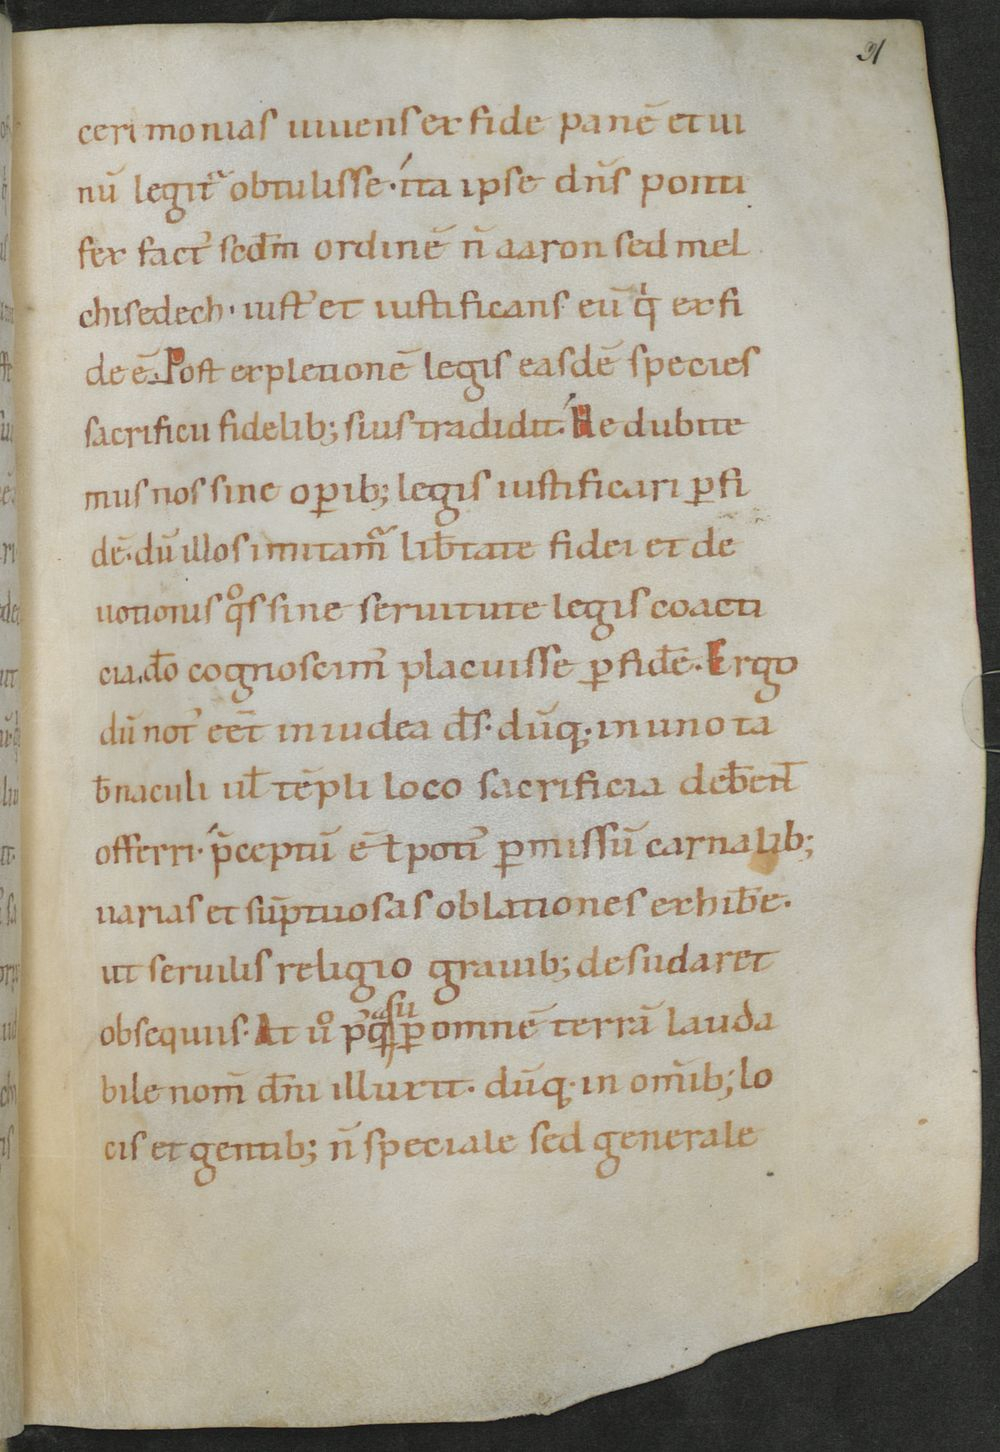 21
cerimonias uiuens ex fide panē et ui
nū legit᷑ obtulisse· ita ipse dn̄s ponti
fex fact᾽ sedm̄ ordinē n̄ aaron sed mel
chisedech· iust᾽ et iustificans eū qͥ ex fi
de ē. Post expletionē legis easdē species
sacrificii fidelib; suis tradidit. Ne dubite
mus nos sine oꝑib; legis iustificari ꝑ fi
dē· dū illos imitam᷑ lib̄tate fidei et de
uotionis qͦs sine seruitute legis coacti
cia. dō cognoscim᾽ placuisse ꝑ fidē. Ergo
dū not᾽ eēt in iudea ds̄· dūq; in uno ta
b̄naculi ul̄ tēpli loco sacrificia deb̄ent̄
offerri· p̄ceptū ē ł poti᾽ ꝑmissū carnalib;
uarias et sūptuosas oblationes exhib̄e·
ut seruilis religio grauib; desudaret
obsequiis· At uͦ p᾽qᷓ suꝑ omnē terrā lauda
bile nom̄ dn̄i illuxit· dūq; in om̄ib; lo
cis et gentib; n̄ speciale sed generale